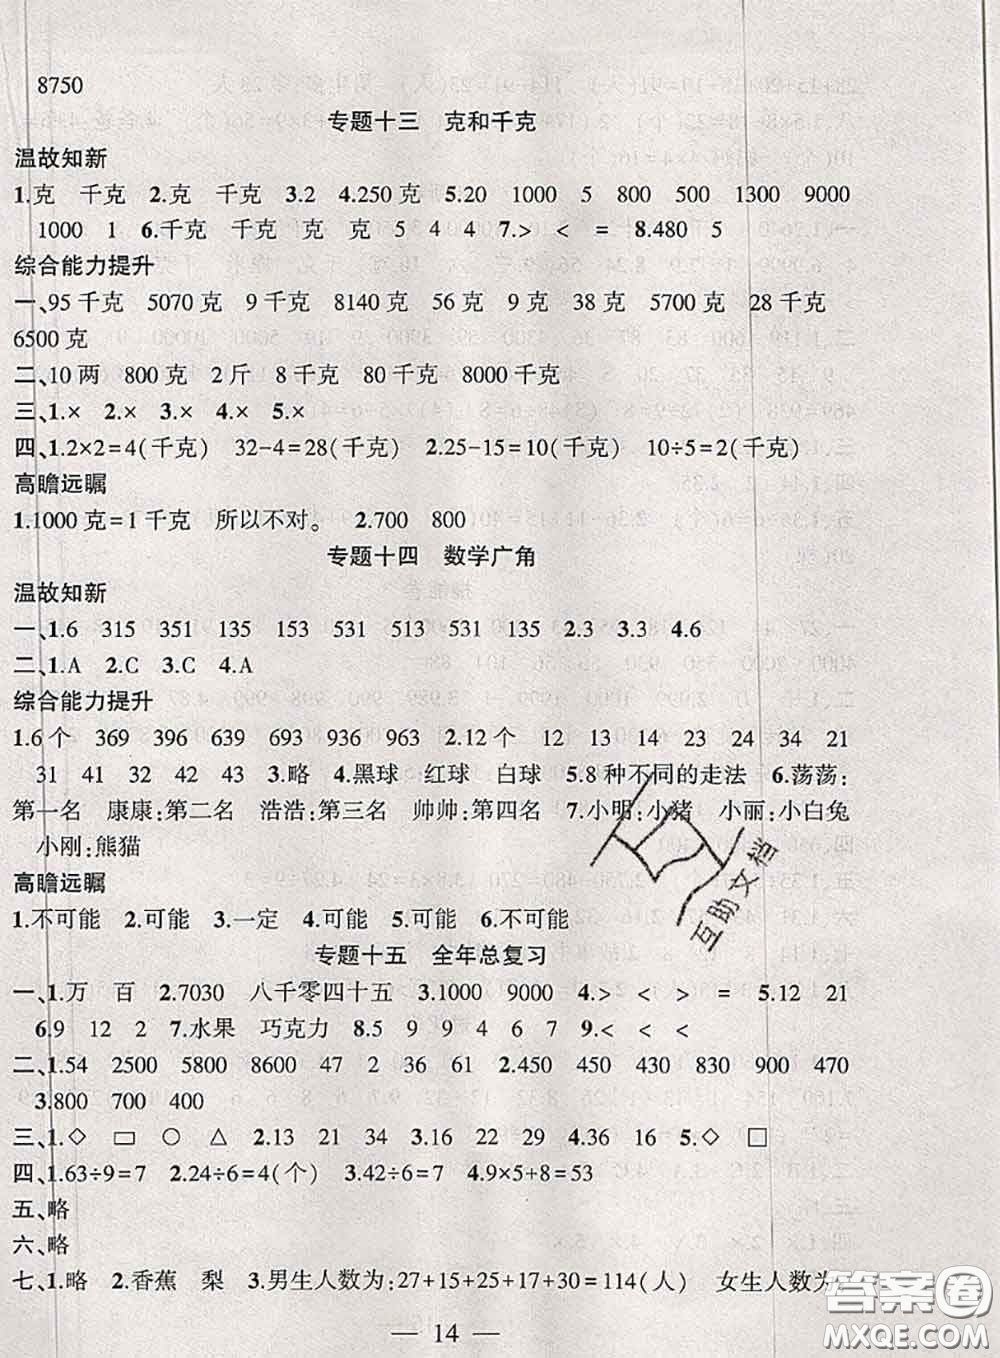 8750
专题十三　克和千克
温故知新
1.克　千克　2.克　千克　3.2　4.250 克　5.20　1000　5　800　500　1300　9000
1000　1　6.千克　千克　克　克　5　4　4　7.>　<　=　8.480　5
综合能力提升
一、95 千克　5070 克　9 千克　8140 克　56 克　9 克　38 克　5700 克　28 千克
6500 克
二、10 两　800 克　2 斤　8 千克　80 千克　8000 千克
三、1.×　2.×　3.×　4.×　5.×
四、1.2×2=4(千克)　32-4=28(千克)　2.25-15=10(千克)　10÷5=2(千克)
高瞻远瞩
1.1000 克=1 千克　所以不对。　2.700　800
专题十四　数学广角
温故知新
一、1.6　315　351　135　153　531　513　531　135　2.3　3.3　4.6
二、1.A　2.C　3.C　4.A
综合能力提升
1.6 个　369　396　639　693　936　963　2.12 个　12　13　14　23　24　34　21
31　41　32　42　43　3.略　4.黑球　红球　白球　5.8 种不同的走法　6.荡荡：
第一名　康康：第二名　浩浩：第三名　帅帅：第四名　7.小明：小猪　小丽：小白兔
小刚：熊猫
高瞻远瞩
1.不可能　2.可能　3.一定　4.可能　5.可能　6.不可能
专题十五　全年总复习
一、1.万　百　2.7030　八千零四十五　3.1000　9000　4.>　<　>　=　5.12　21
6.9　12　2　7.水果　巧克力　8.5　9　9　4　6　7　9.<　<　<
二、1.54　2500　5800　8600　47　2　36　61　2.450　450　430　830　900　470
3.800　700　400
三、1.◇　□　○　△　2.13　21　34　3.22　27　4.36　16　5.◇　□
四、1.63÷9=7　2.24÷6=4(个)　3.42÷6=7　4.9×5+8=53
五、略
六、略
七、1.略　2.香蕉　梨　3.男生人数为：27+15+25+17+30=114(人)　女生人数为
— 14 —
互助文档
答案圈
MXQE.COM